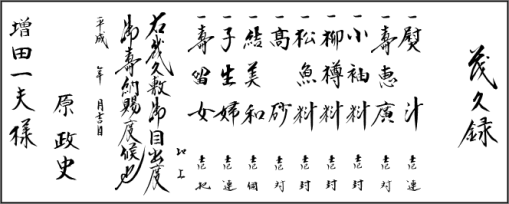 茂久録
一熨斗 壱対
一壽恵廣 壱対
一小袖料 壱封
一柳樽料 壱封
一松魚料 壱封
一高砂 壱対
一結美和 壱個
一子生婦 壱連
一壽留女 壱把
以上
右茂久敷御目出度
御寿納賜度候也
平成 年 月吉日
原 政史
増田一夫様